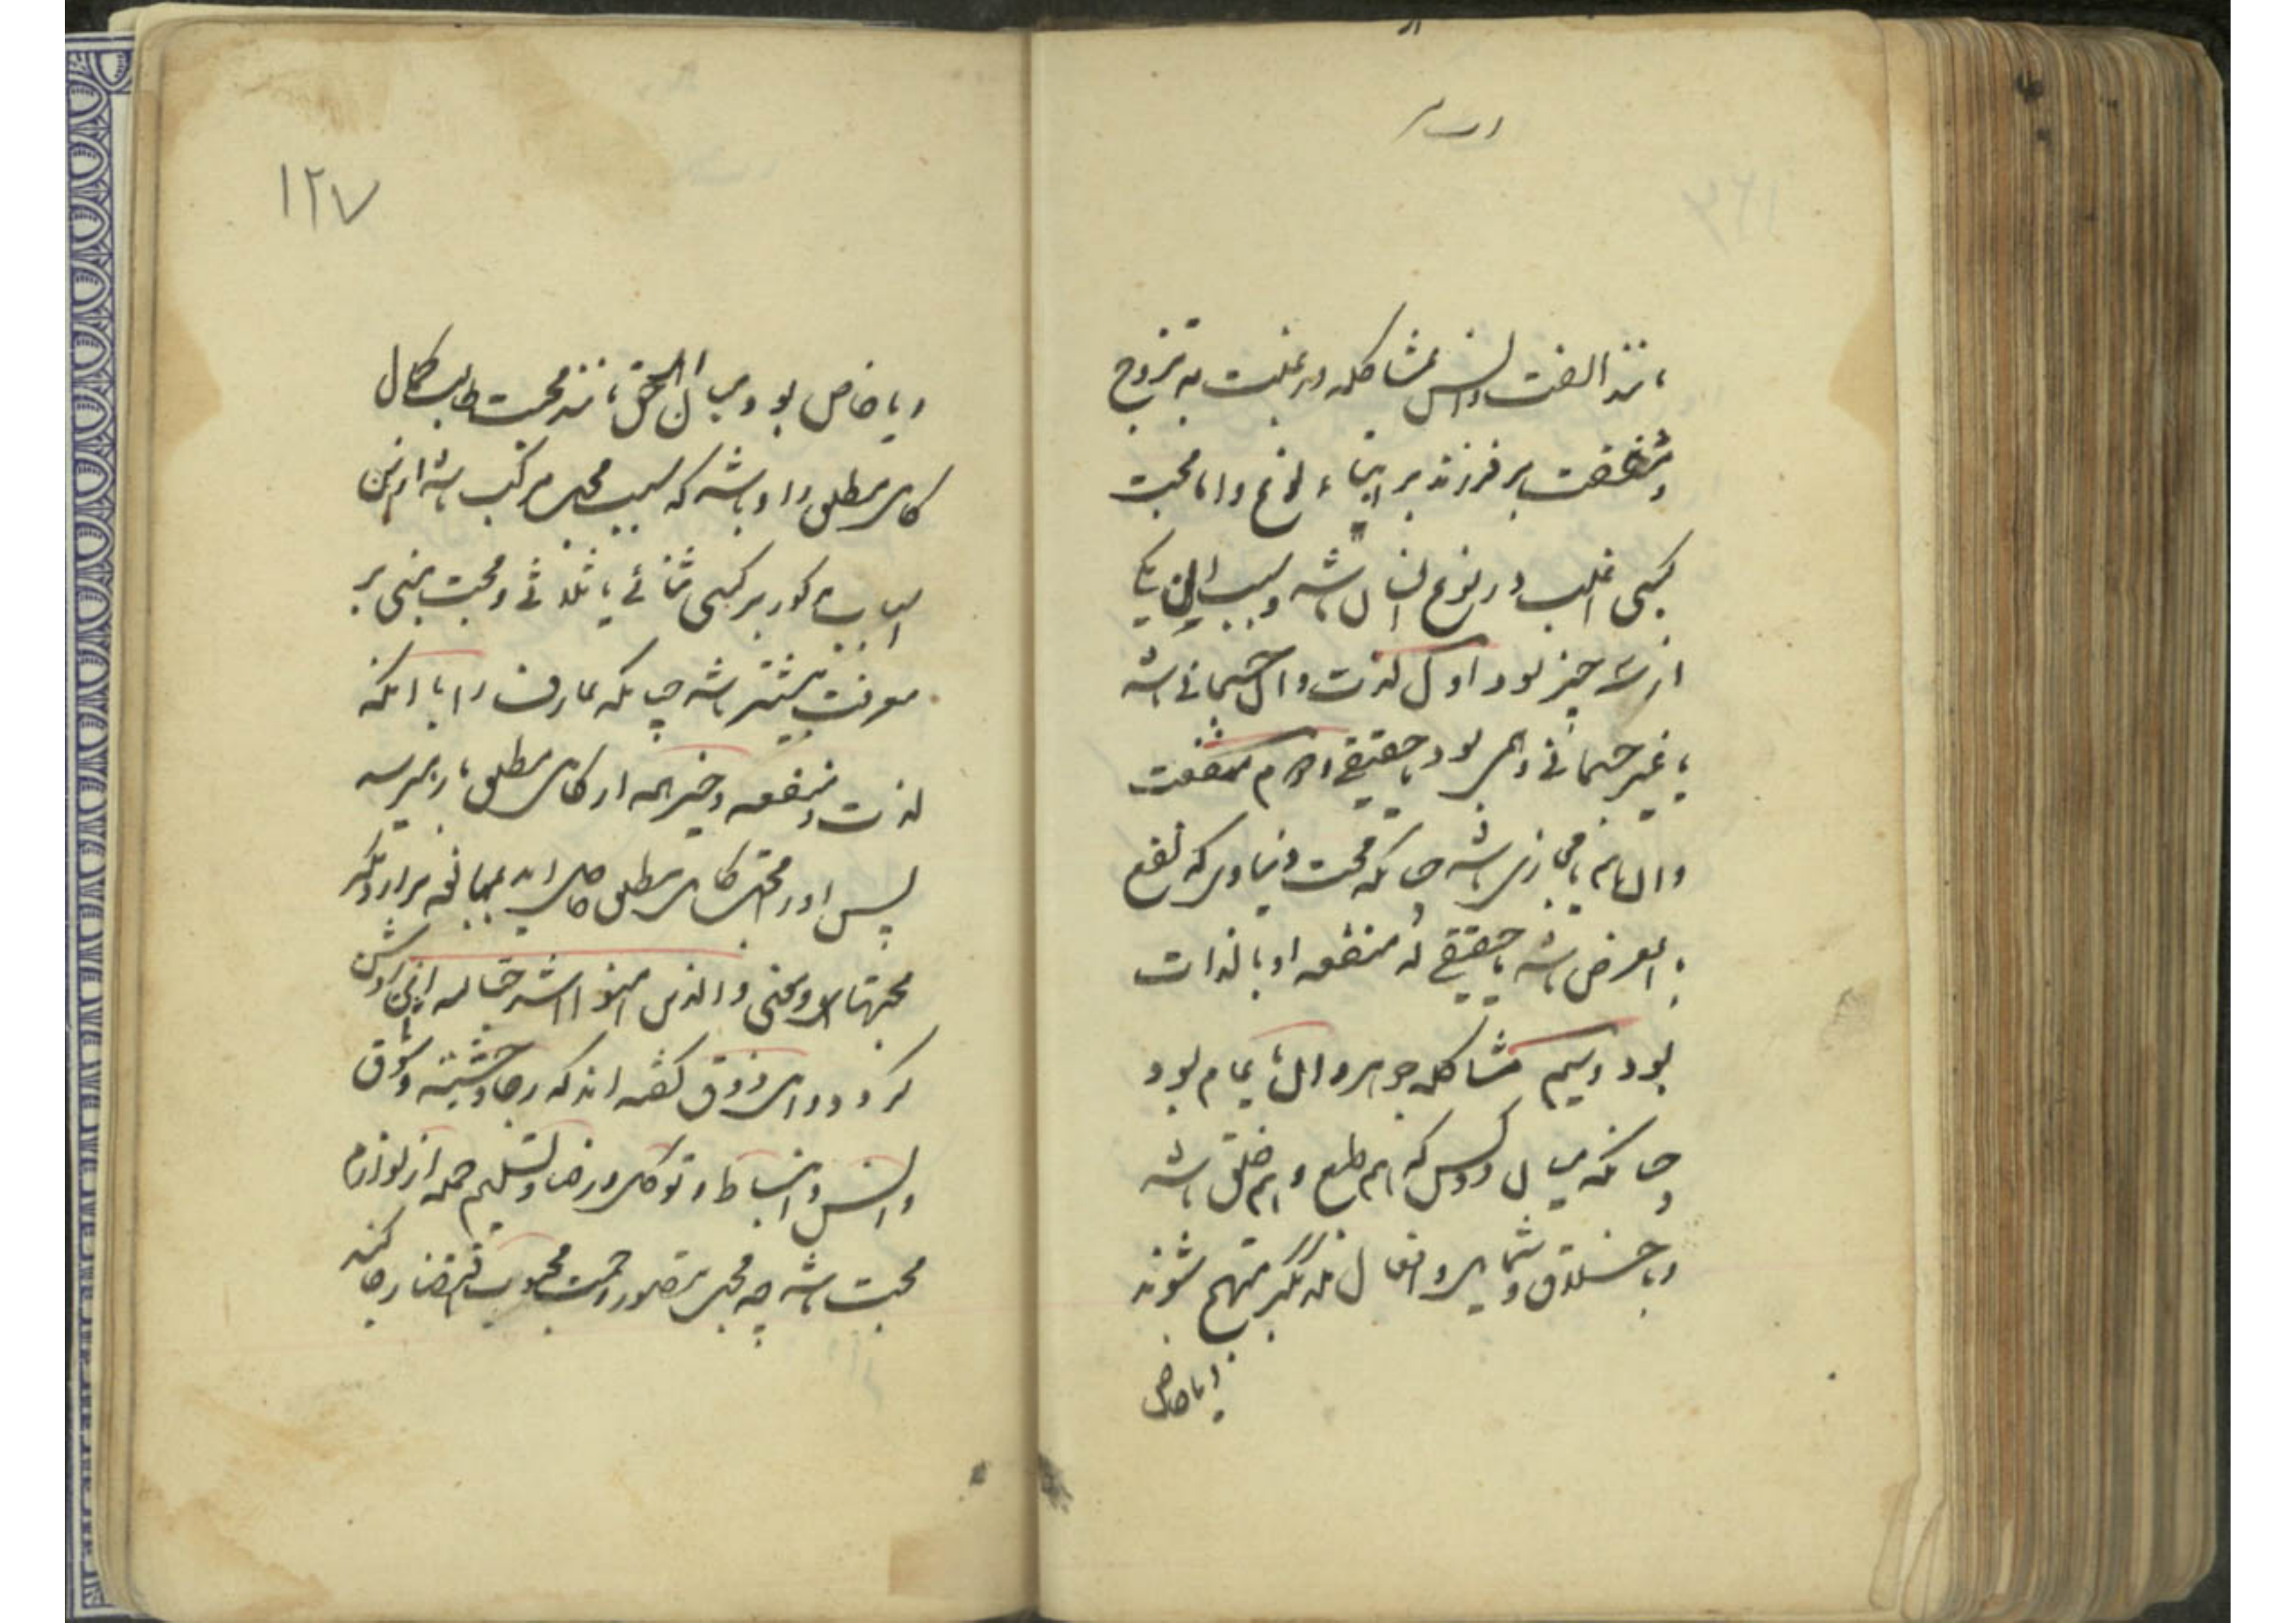 مانند الفت و انس بمشاکله و رغبت به تزوج
و شفقت بر فرزند بر ابناء نوع و اما محبت
کسبی اغلب در نوع انسان باشد و سبب این یکی
از سه چیز بود اول لذت و آن جسمانی باشد
یا غیر جسمانی وهمی بود یا حقیقی دوم منفعت
و آن هم یا مجازی باشد چنانکه محبت دنیاوی که نفع
بالعرض باشد یا حقیقی که منفعه او بالذات
بود و سیم مشاکله جوهر و آن یا عام بود
چنانکه میان دو کس که هم طبع و هم خلق باشد
و باخلاق و شمایل و افعال یکدیگر مبتهج شوند
و یا خاص
۱۲۷
و یا خاص بود میان اهل حق مانند محبت طالب کمال
کامل مطلق را و باشد که سبب محبت مرکب باشد از این
اسباب مذکور ترکیبی ثنائی یا ثلاثی و محبت مبنی بر
معرفت بیشتر باشد چنانکه عارف را با آنکه
لذت و منفعه و خیر همه از کامل مطلق باو میرسد
پس او را محبت کامل مطلق حاصل آید بمبالغه تر از دیگر
محبتها و معنی والذین آمنوا اشد حبا لله اینجا روشن
کردد و اهل ذوق کفته اند که رجا و خشیته و شوق
و انس و انبساط و توکل و رضا و تسلیم جمله از لوازم
محبت باشد چه محبت تصور رحمت محبوب اقتضاء رجا کند